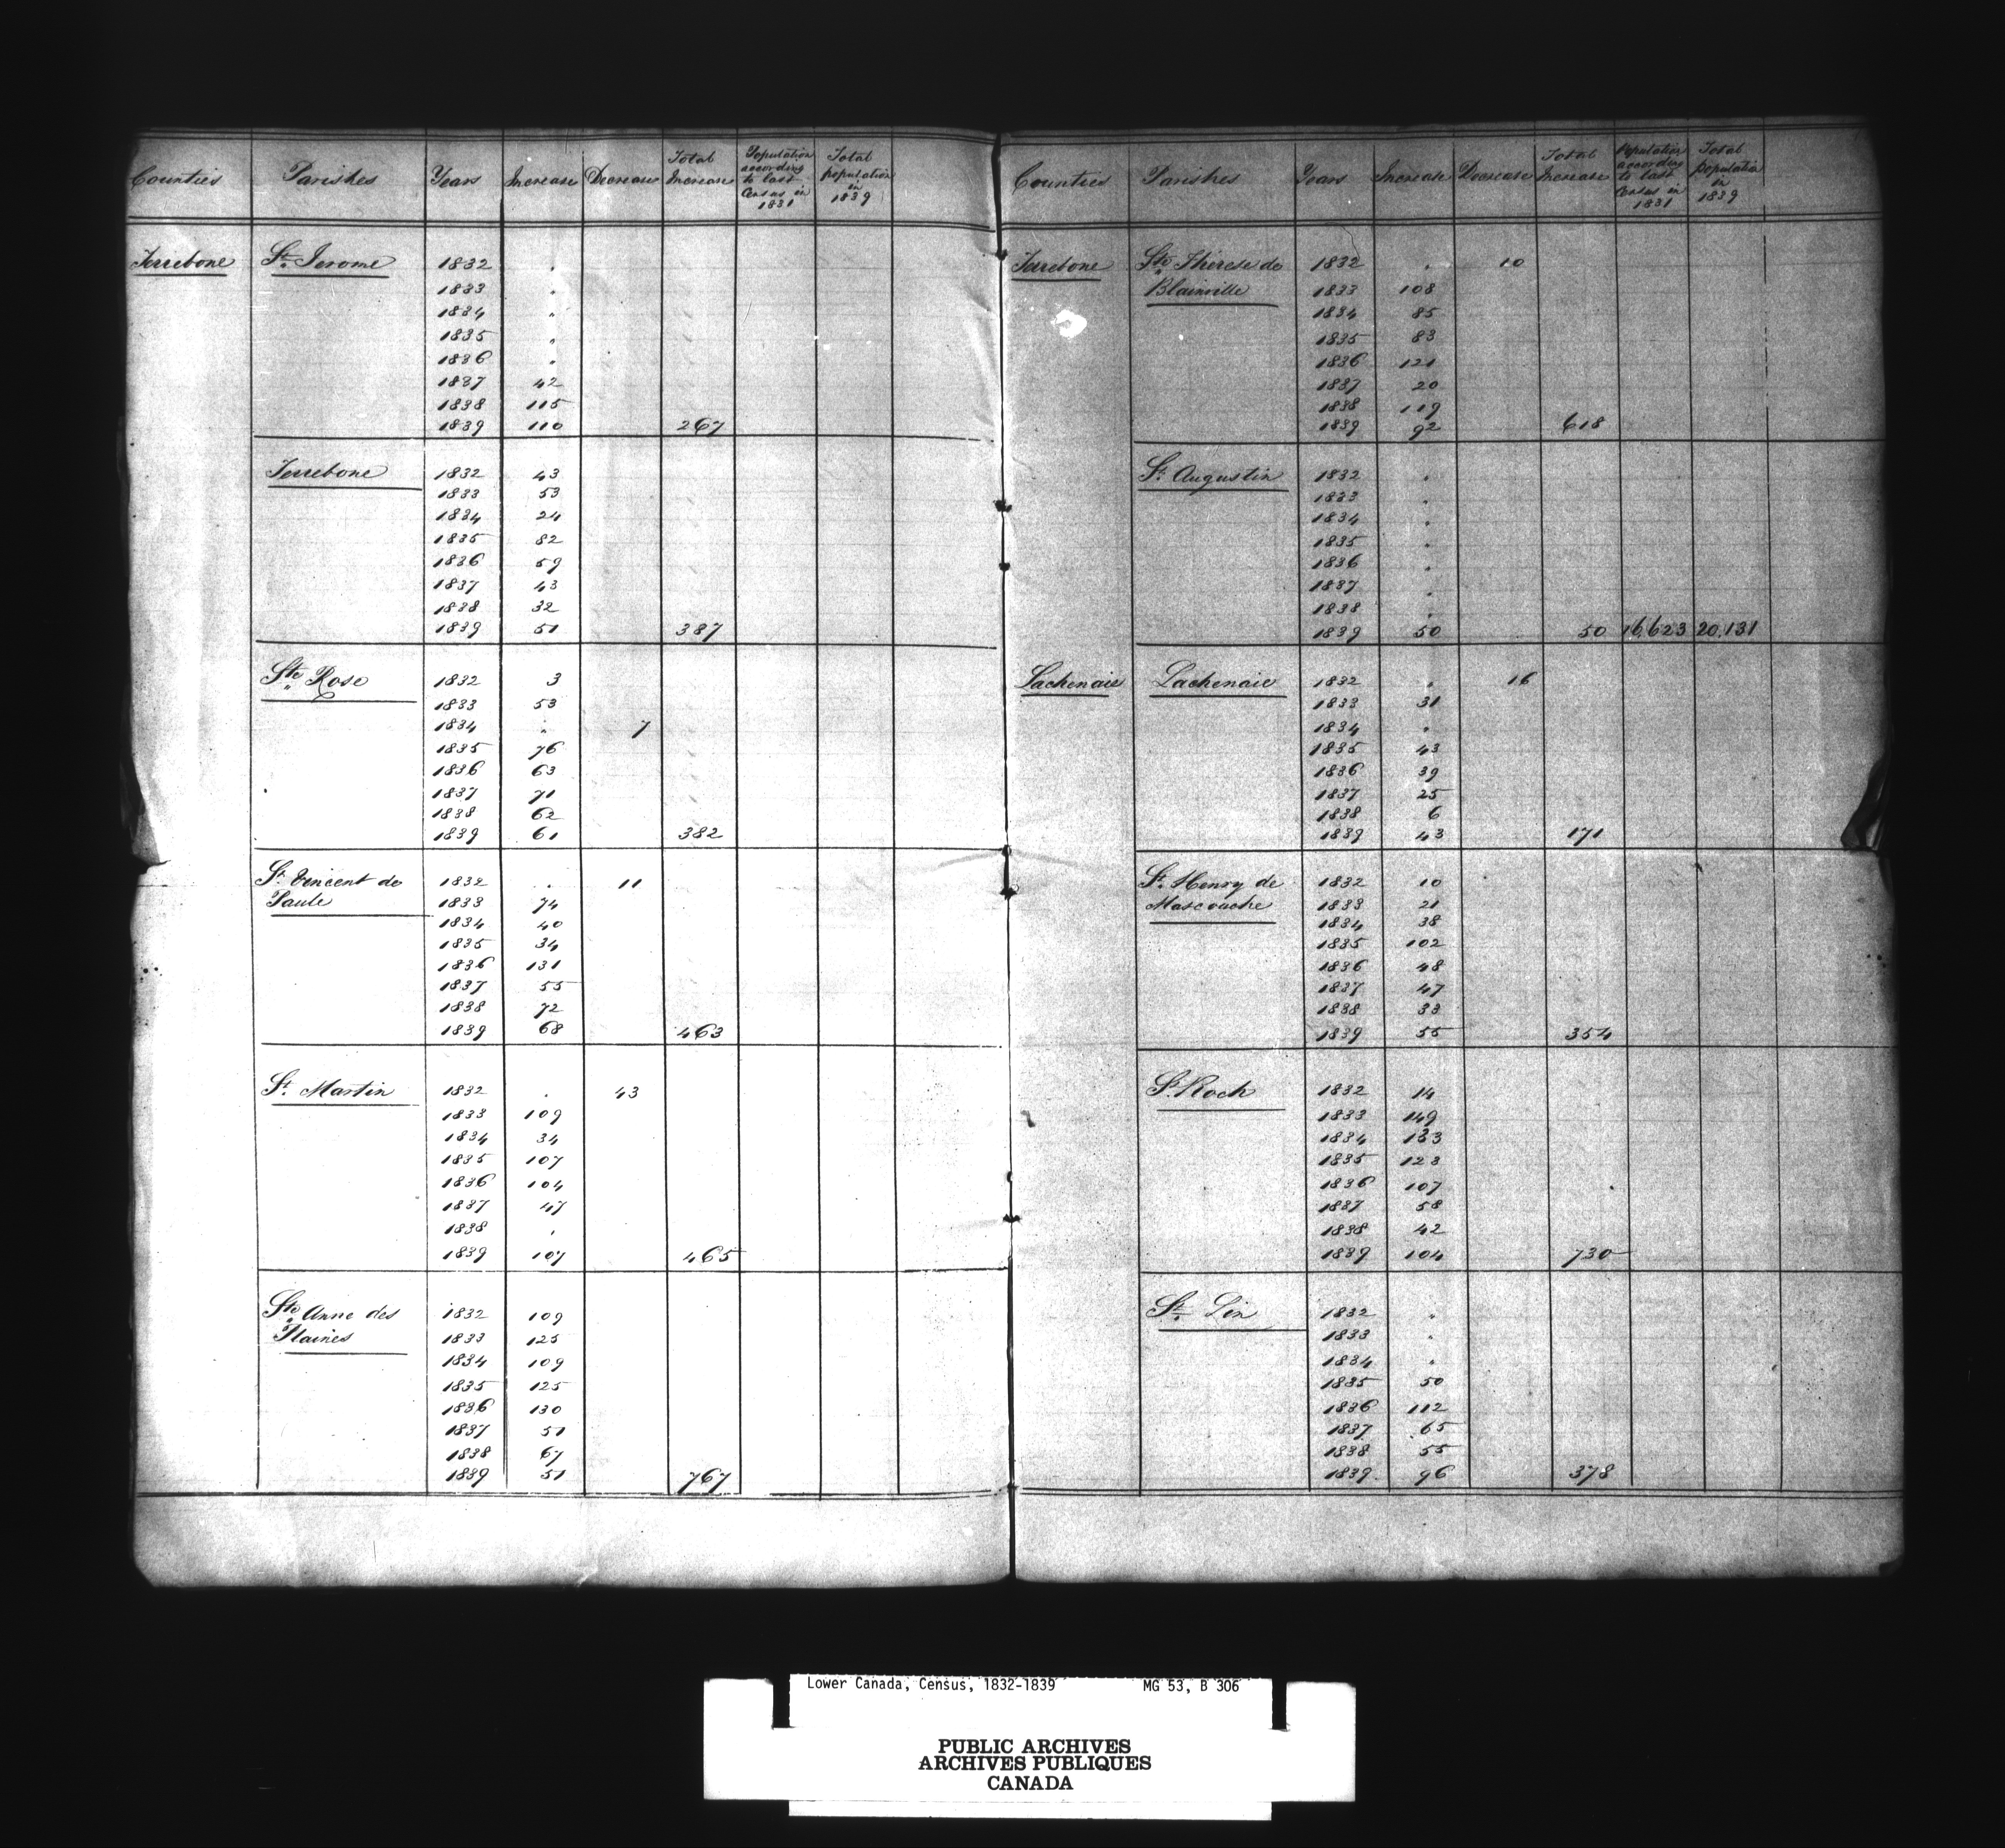 Counties Parishes Years Increase Decrease Total Increase Population according to last Census in 1831 Total population in 1839
Terrebone St. Jerome 1832 "
1833 "
1834 "
1835 "
1836 "
1837 42
1838 115
1839 110 267
Terrebone 1832 43
1833 53
1834 24
1835 82
1836 59
1837 43
1838 32
1839 51 387
Ste. Rose 1832 3
1833 53
1834 " 7
1835 76
1836 63
1837 71
1838 62
1839 61 382
St. Vincent de 1832 " 11
Paule 1833 74
1834 40
1835 34
1836 131
1837 55
1838 72
1839 68 463
St. Martin 1832 " 43
1833 109
1834 34
1835 107
1836 104
1837 47
1838 "
1839 107 465
Ste. Anne des 1832 109
Plaines 1833 125
1834 109
1835 125
1836 130
1837 51
1838 67
1839 51 767
Counties Parishes Years Increase Decrease Total Increase Population according to last Census in 1831 Total population in 1839
Terrebone Ste. Thérese de 1832 " 10
Blainville 1833 108
1834 85
1835 83
1836 121
1837 20
1838 119
1839 92 618
St. Augustin 1832 "
1833 "
1834 "
1835 "
1836 "
1837 "
1838 "
1839 50 50 16,623 20,131
Lachenaie Lachenaie 1832 " 16
1833 31
1834 "
1835 43
1836 39
1837 25
1838 6
1839 43 171
St. Henry de 1832 10
Mascouche 1833 21
1834 38
1835 102
1836 48
1837 47
1838 33
1839 55 354
St. Roch 1832 14
1833 149
1834 133
1835 123
1836 107
1837 58
1838 42
1839 104 730
St. Lin 1832 "
1833 "
1834 "
1835 50
1836 112
1837 65
1838 55
1839 96 378
Lower Canada, Census, 1832-1839 MG 53, B 306
PUBLIC ARCHIVES
ARCHIVES PUBLIQUES
CANADA